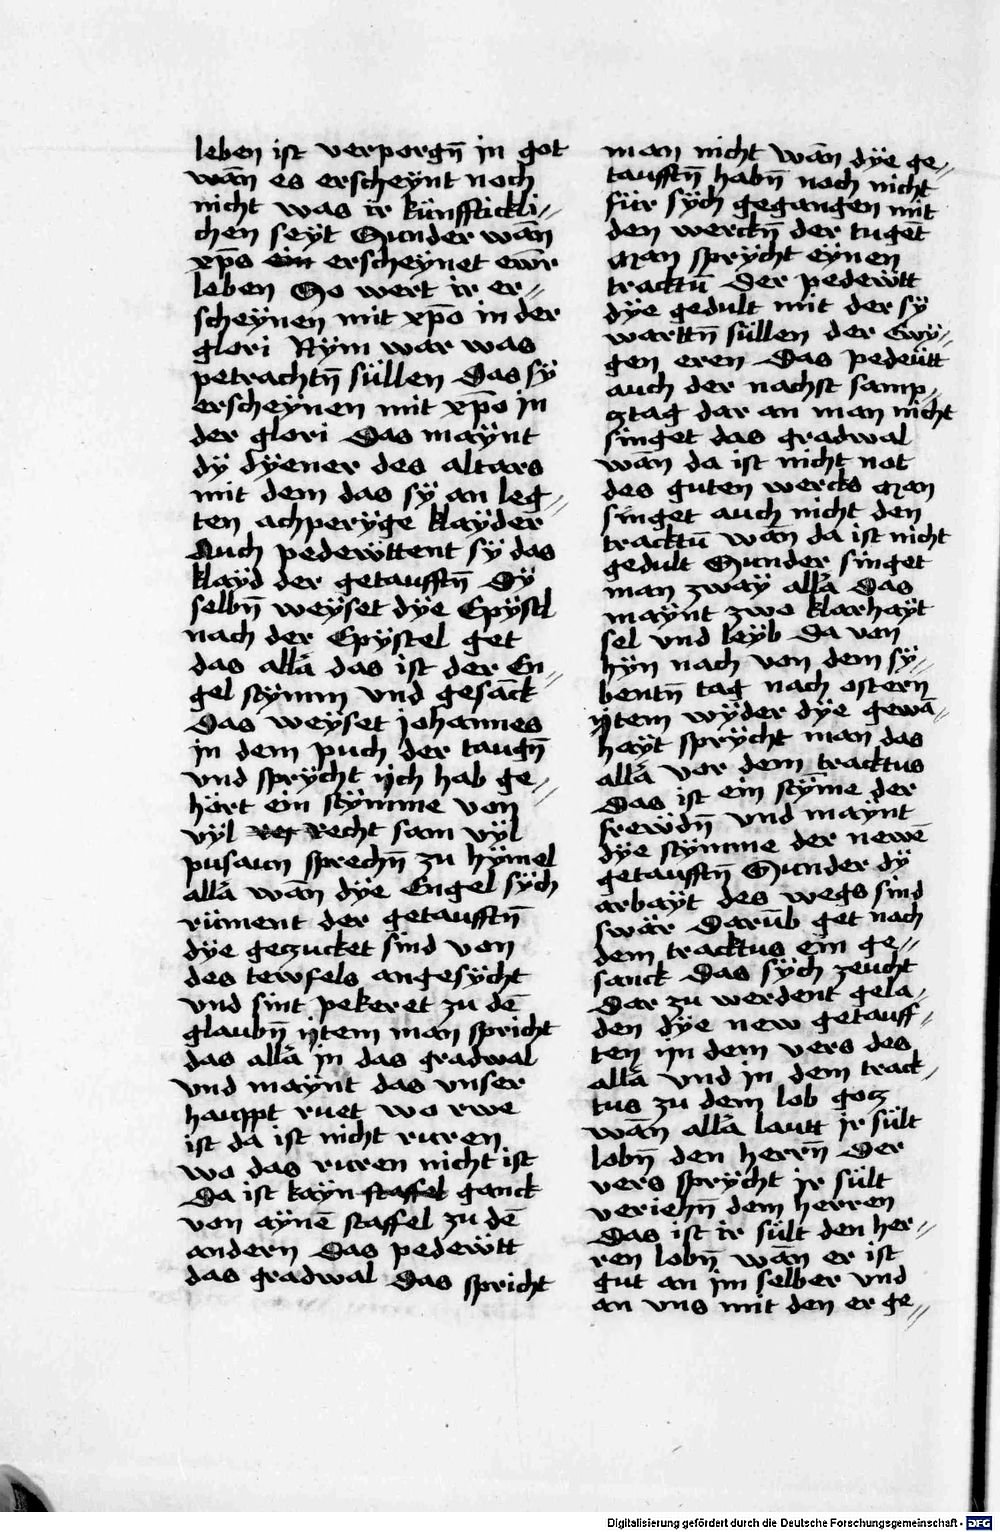 leben ist verporgn̄ in got
wān es erscheÿnt noch
nicht was ir künfftickli⸗
chen seÿt Sunder wān
xp̄s ein erscheÿnet ewr̄
leben So wert ir er⸗
scheÿnen mit xp̄o in der
glori Nÿm war was
petrachtn̄ süllen Das sÿ
erscheÿnen mit xp̄o in
der glori Das maÿnt
dÿ dÿener des altars
mit dem das sÿ an leg⸗
ten achperÿge klaÿder
Auch pedewttent sÿ das
klaÿd der getaufftn̄ Dÿ
selbn̄ weÿset dÿe Epÿstl
nach der Epÿstel get
das allā das ist der En⸗
gel stÿmm vnd gesāck
Das weÿset johannes
in dem puch der taugn̄
vnd sprÿcht ijch hab ge⸗
hört ein stÿmme von
vÿl rei recht sam vÿl
pusaun sprechn̄ zu hÿmel
allā wān dÿe Engel sÿch
rüment der getaufftn̄
dÿe geczucket sind von
des tewfels angesÿcht
vnd sint pekeret zu dē
glaubn̄ ijtem man spricht
das allā in das gradwal
vnd maÿnt das vnser
haupt ruet wo rwe
ist da ist nicht ruren
wo das ruren nicht ist
Da ist kaÿn staffel ganck
von aÿnē staffel zu dē
andern Das pedewtt
das gradwal Das spricht
man nicht wān dÿe ge⸗
taufftn̄ habn̄ noch nicht
für sÿch gegangen mit
den werckn̄ der tuget
Man sprÿcht eÿnen
tracktū Der pedewtt
dÿe gedult mit der sÿ
warttn̄ süllen der Ewÿ⸗
gen eren Das pedeütt
auch der nachst samp⸗
ztag dar an man nicht
singet das gradwal
wān da ist nicht not
des guten wercks Man
singet auch nicht den
tracktū wān da ist nicht
gedult Sunder singet
man zwaÿ allā Das
maÿnt zwo klarhaÿt
sel vnd leÿb Da von
hÿn nach von dem sÿ⸗
bentn̄ tag nach ostern
ijtem wÿder dÿe gewā⸗
haÿt sprÿcht man das
allā vor dem tracktus
Das ist ein stÿme der
frewdn̄ vnd maÿnt
dÿe stÿmme der newē
getaufftn̄ Sunder dÿ
arbaÿt des wegs sind
swär Darūb get nach
dem tracktus ein ge⸗
sanck Das sÿch zeucht
Dar zu werdent gela⸗
den dÿe new getauff⸗
ten in dem vers des
allā vnd in dem track⸗
tus zu dem lob gocz
wān allā lautt ir sült
lobn̄ den herrn̄ Der
vers sprÿcht ir sült
veriehn̄ dem herren
Das ist ir sült den her⸗
ren lobn̄ wān er ist
gut an im selber vnd
an vns mit den er ge⸗
Digitalisierung gefördert durch die Deutsche Forschungsgemeinschaft - DFG